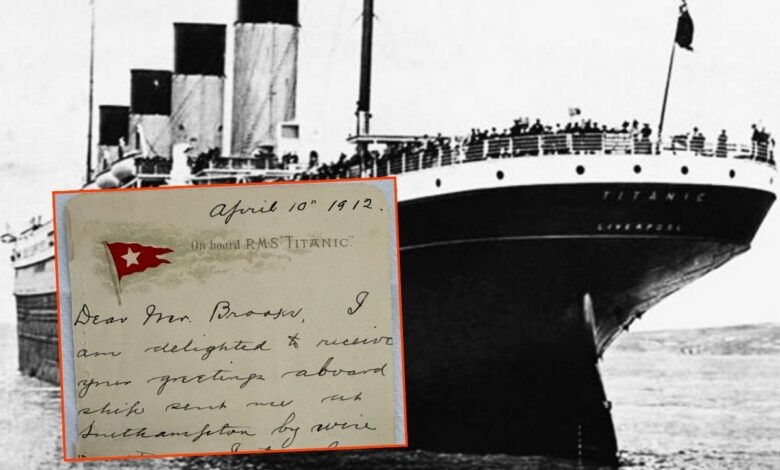 TITANIC
LIVERPOOL
April 10th 1912.
On board RMS "TITANIC".
Dear Mr. Brooks, I
am delighted to receive
your greetings aboard
ship sent me at
Southampton by wire